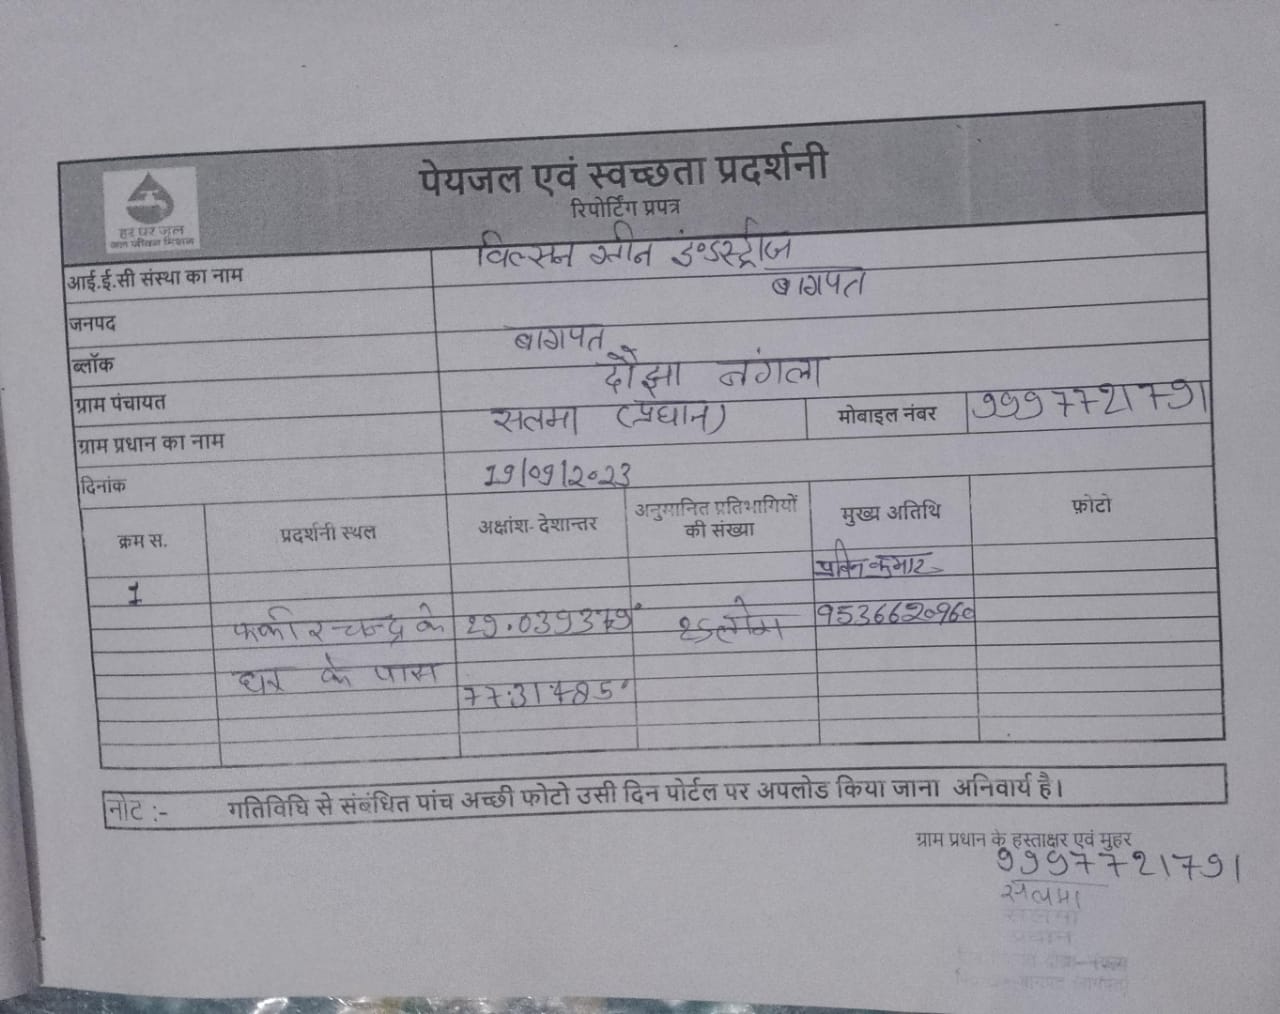 पेयजल एवं स्वच्छता प्रदर्शनी
रिपोर्टिंग प्रपत्र
हर घर जल
जल जीवन मिशन
आई.ई.सी संस्था का नाम विल्सन ग्रीन इंण्डस्ट्रीज
जनपद बागपत
ब्लॉक बागपत
ग्राम पंचायत दौझा नंगला
ग्राम प्रधान का नाम सलमा (प्रधान) मोबाइल नंबर 9997721791
दिनांक 19/09/2023
क्रम स. प्रदर्शनी स्थल अक्षांश- देशान्तर अनुमानित प्रतिभागियों की संख्या मुख्य अतिथि फ़ोटो
1 प्रविन कुमार
फकीरचन्द्र के 29.039379° लोग 9536620960
घर के पास 77.31485°
नोट :- गतिविधि से संबंधित पांच अच्छी फोटो उसी दिन पोर्टल पर अपलोड किया जाना अनिवार्य है।
ग्राम प्रधान के हस्ताक्षर एवं मुहर
9997721791
सलमा
सलमा
प्रधान